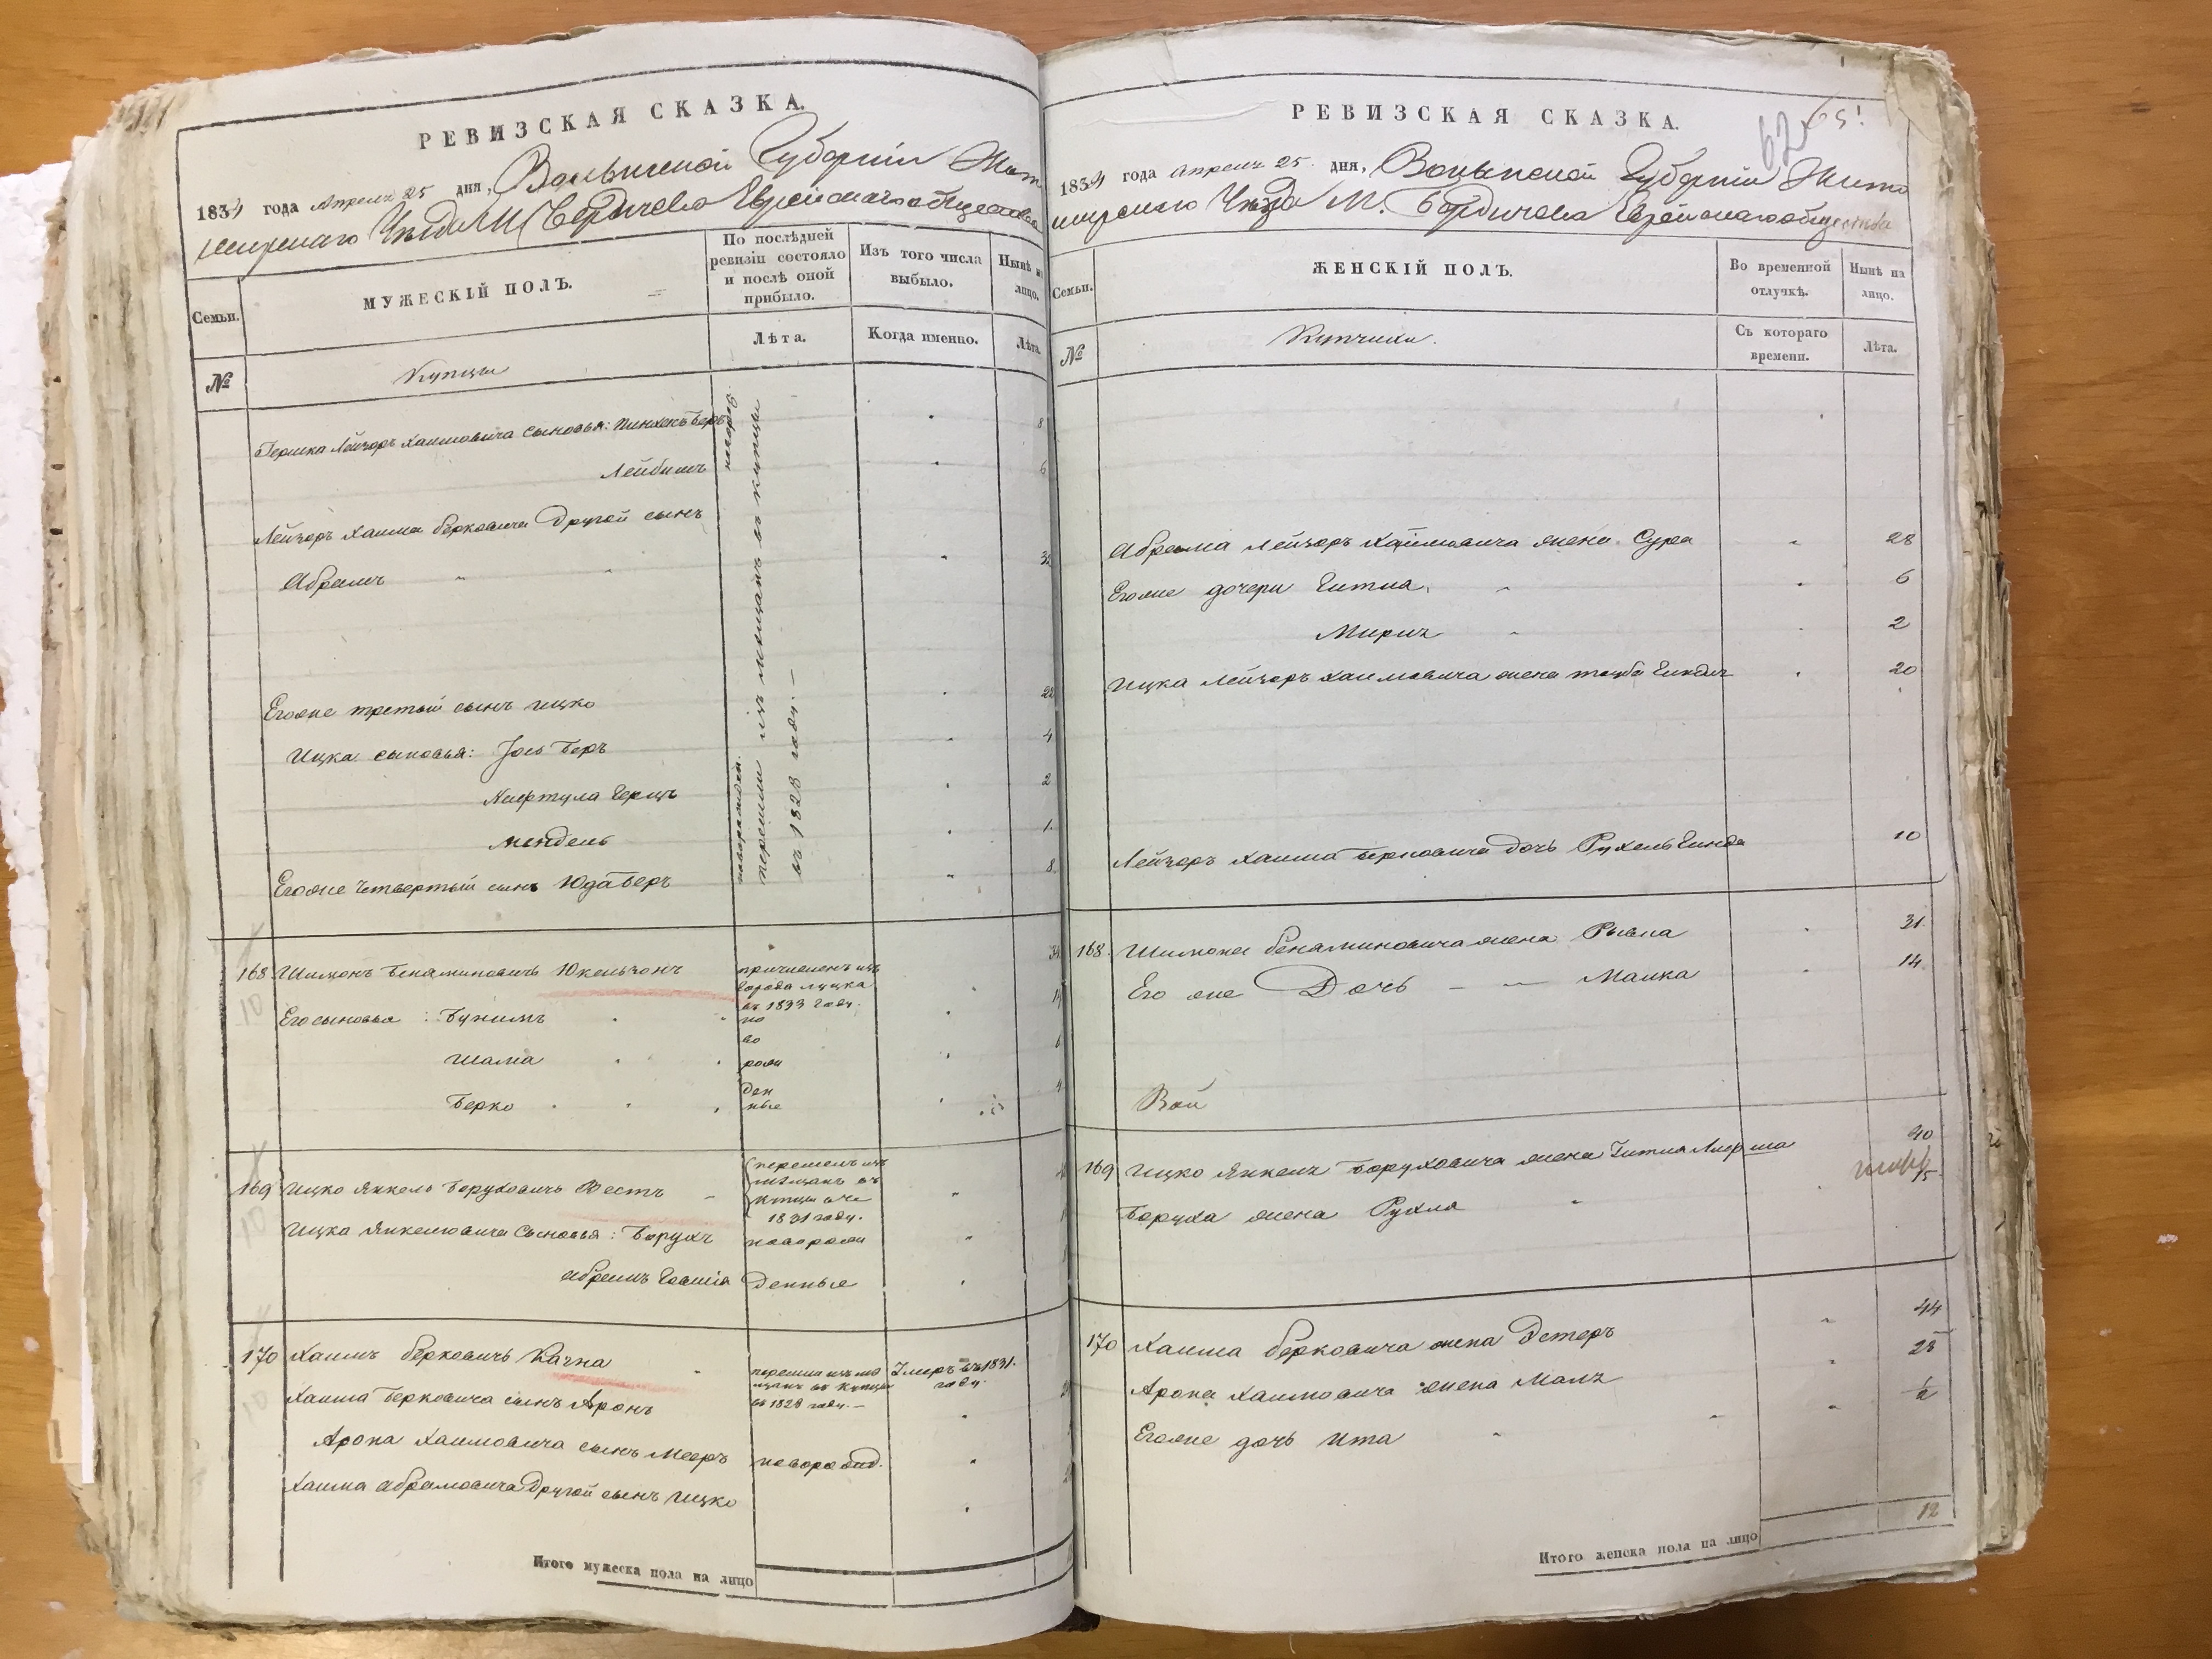 РЕВИЗСКАЯ СКАЗКА.
1834 года Апреля 25 дня, Волынской Губерніи Жит
мирскаго Уѣзда М. Бердичева Еврейскаго общества
Семьи.
МУЖЕСКІЙ ПОЛЪ.
По послѣдней
ревизіи состояло
и послѣ оной
прибыло.
Изъ того числа
выбыло.
Нынѣ на
лицо.
№
Купцы
Лѣта.
Когда именно.
Лѣта.
Гершка Лейзоръ Хаимовича сыновья: Пинхосъ Беръ 8
Лейбишъ
новорож
перешли изъ мѣщанъ въ купцы
въ 1828 году.
Лейзоръ Хаима Берковича Другой сынъ
Абрамъ
Егоже третьий сынъ Ицко
Ицка сыновья: Іось Беръ 4
Нафтула Герцъ 2
Мендель 1
новорожден.
Егоже Четвертый сынъ Юда Беръ 8
168 Шимонъ Бенаминовичъ Юкельзонъ
причисленъ изъ
города Луцка
въ 1833 году.
10
Его сыновья: Бунимъ
но
во
Шама
рож
Берко 4
ден
ные
169 Ицко Янкель Боруховичъ Вестъ
перешелъ изъ
мѣщанъ въ
купцы въ
1831 году.
10
Ицка Янкелевича Сыновья: Борухъ новорож
Абрамъ Іовшія денные
170 Хаимъ Берковичъ Качка
перешли изъ мѣ
щанъ въ купцы
въ 1828 году.
Умеръ въ 1831.
году.
10
Хаима Берковича сынъ Аронъ
Арона Хаимовича сынъ Мееръ новорожд.
Хаима Абрамовича Другой сынъ Ицко
Итого мужеска пола на лицо
РЕВИЗСКАЯ СКАЗКА.
62 65!
1834 года Апреля 25 дня, Волынской Губерніи Жито
мирскаго Уѣзда М. Бердичева Еврейскаго общества
Семьи.
ЖЕНСКІЙ ПОЛЪ.
Во временной
отлучкѣ.
Нынѣ на
лицо.
№
Купчихи.
Съ котораго
времени.
Лѣта.
Абрама Лейзоръ Хаимовича жена Сура 28
Егоже дочери Гитла 6
Миріъ 2
Ицка Лейзоръ Хаимовича жена Тауба Гинда 20
Лейзоръ Хаима Берковича дочь Рухель Гинда 10
168. Шимона Бенаминовича жена Рывка 31.
Его же Дочь Малка 14.
169 Ицко Янкель Боруховича жена Гитля 40
Боруха жена Рухля 15.
170 Хаима Берковича жена Эстеръ 44
Арона Хаимовича жена Маля 25
Егоже дочь Ита 1/2
12
Итого женска пола на лицо